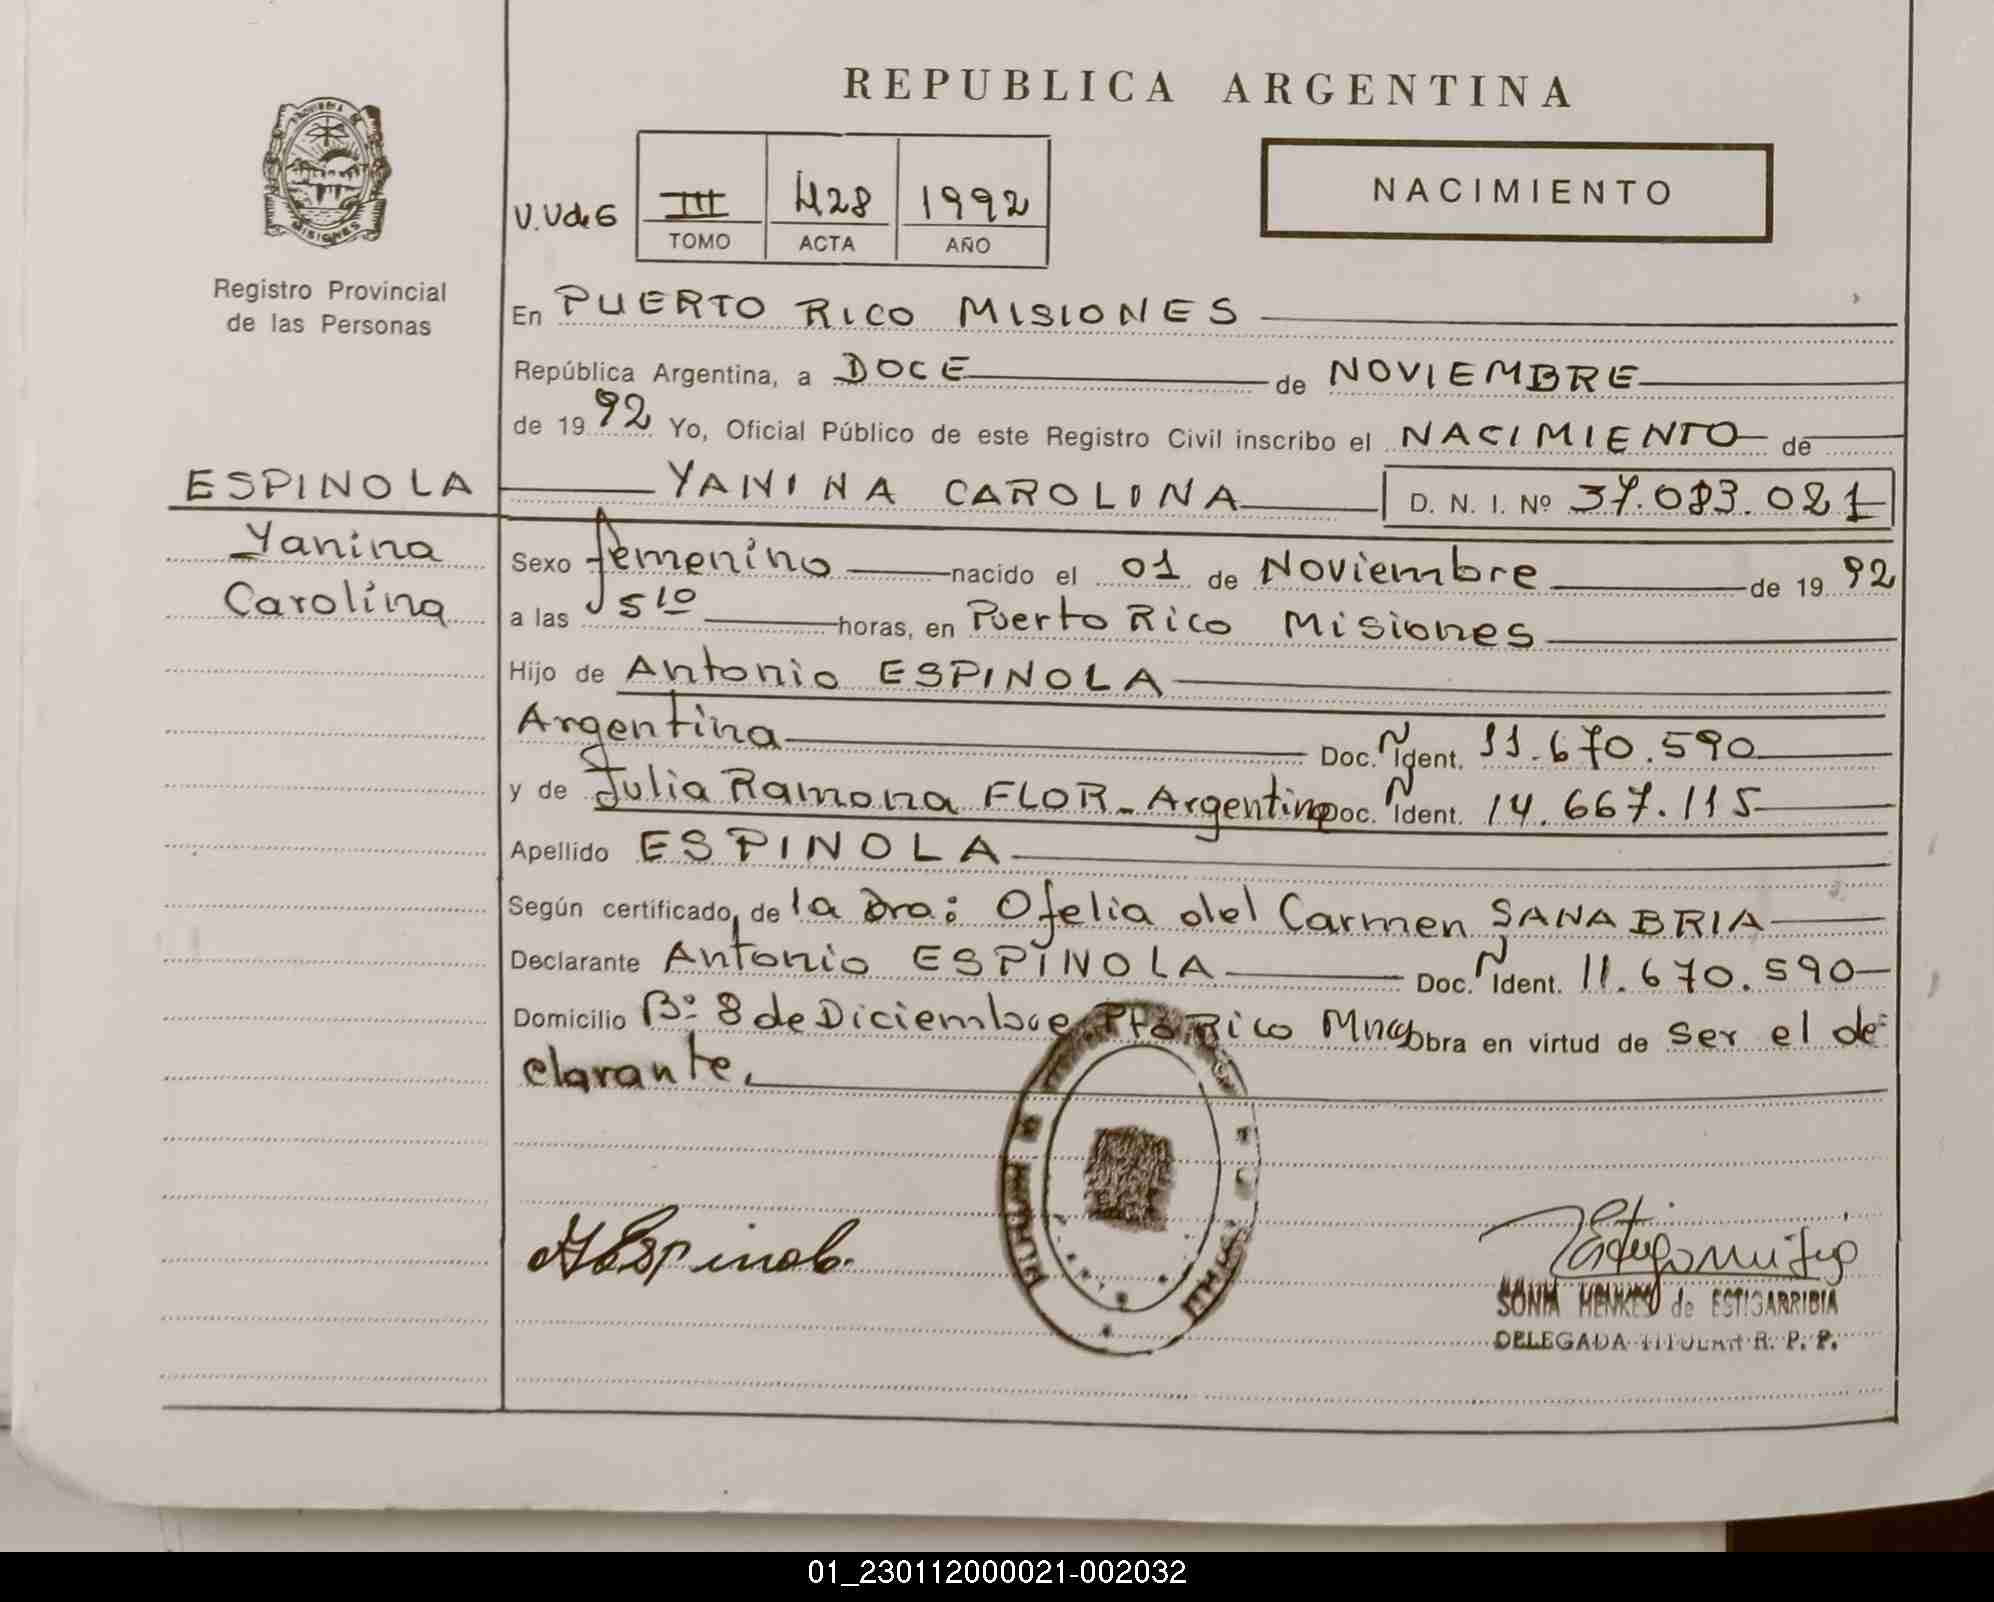 REPUBLICA ARGENTINA
PROVINCIA DE
MISIONES
Registro Provincial
de las Personas
NACIMIENTO
V.Vde6
III 428 1992
TOMO ACTA AÑO
En PUERTO RICO MISIONES
República Argentina, a DOCE de NOVIEMBRE
de 1992 Yo, Oficial Público de este Registro Civil inscribo el NACIMIENTO de
ESPINOLA YANINA CAROLINA D. N. I. Nº 37.083.021
Yanina
Carolina
Sexo femenino nacido el 01 de Noviembre de 1992
a las 5 10 horas, en Puerto Rico Misiones
Hijo de Antonio ESPINOLA
Argentina Doc. N Ident. 11.670.590
y de Julia Ramona FLOR - Argentina Doc. N Ident. 14.667.115
Apellido ESPINOLA
Según certificado, de la Dra: Ofelia del Carmen SANABRIA
Declarante Antonio ESPINOLA Doc. N Ident. 11.670.590
Domicilio Bº 8 de Diciembre Pto Rico Mnes Obra en virtud de ser el de-
clarante.
A Espinola
SONIA HENKES de ESTIGARRIBIA
DELEGADA TITULAR R. P. P.
01_230112000021-002032